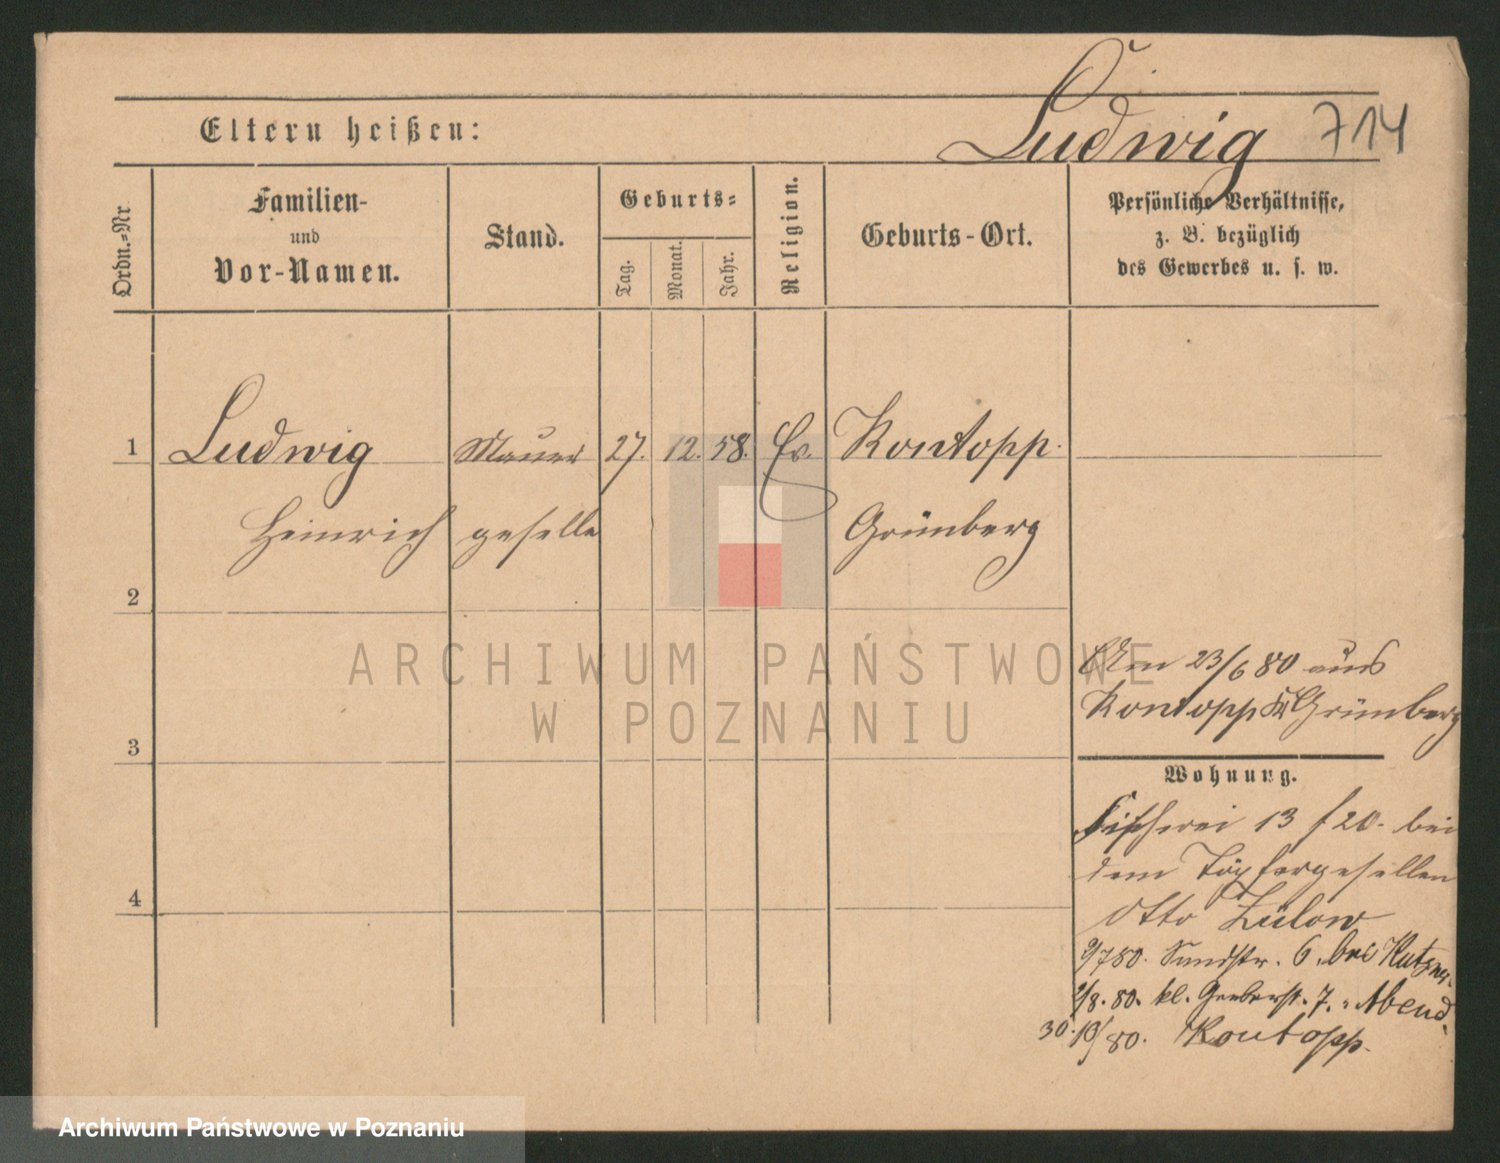 Ludwig 714
Eltern heißen:
Ordn.-Nr
Familien-
und
Vor-Namen.
Stand.
Geburts-
Tag.
Monat.
Jahr.
Religion.
Geburts-Ort.
Persönliche Verhältnisse,
z. B. bezüglich
des Gewerbes u. s. w.
1 Ludwig Maurer 27. 12. 58. Ev. Kontopp.
Heinrich geselle Grünberg
2
Am 23/6 80 aus
Kontopp Grünberg
3
Wohnung.
Fischerei 13 f 20. bei
dem Töpfergesellen
4
Otto Zülow
9/7 80. Sandstr. 6. bei Kutzner
2/8. 80. kl. Gerberst. 7. Abend
30. 10/80. Kontopp.
ARCHIWUM PAŃSTWOWE
W POZNANIU
Archiwum Państwowe w Poznaniu